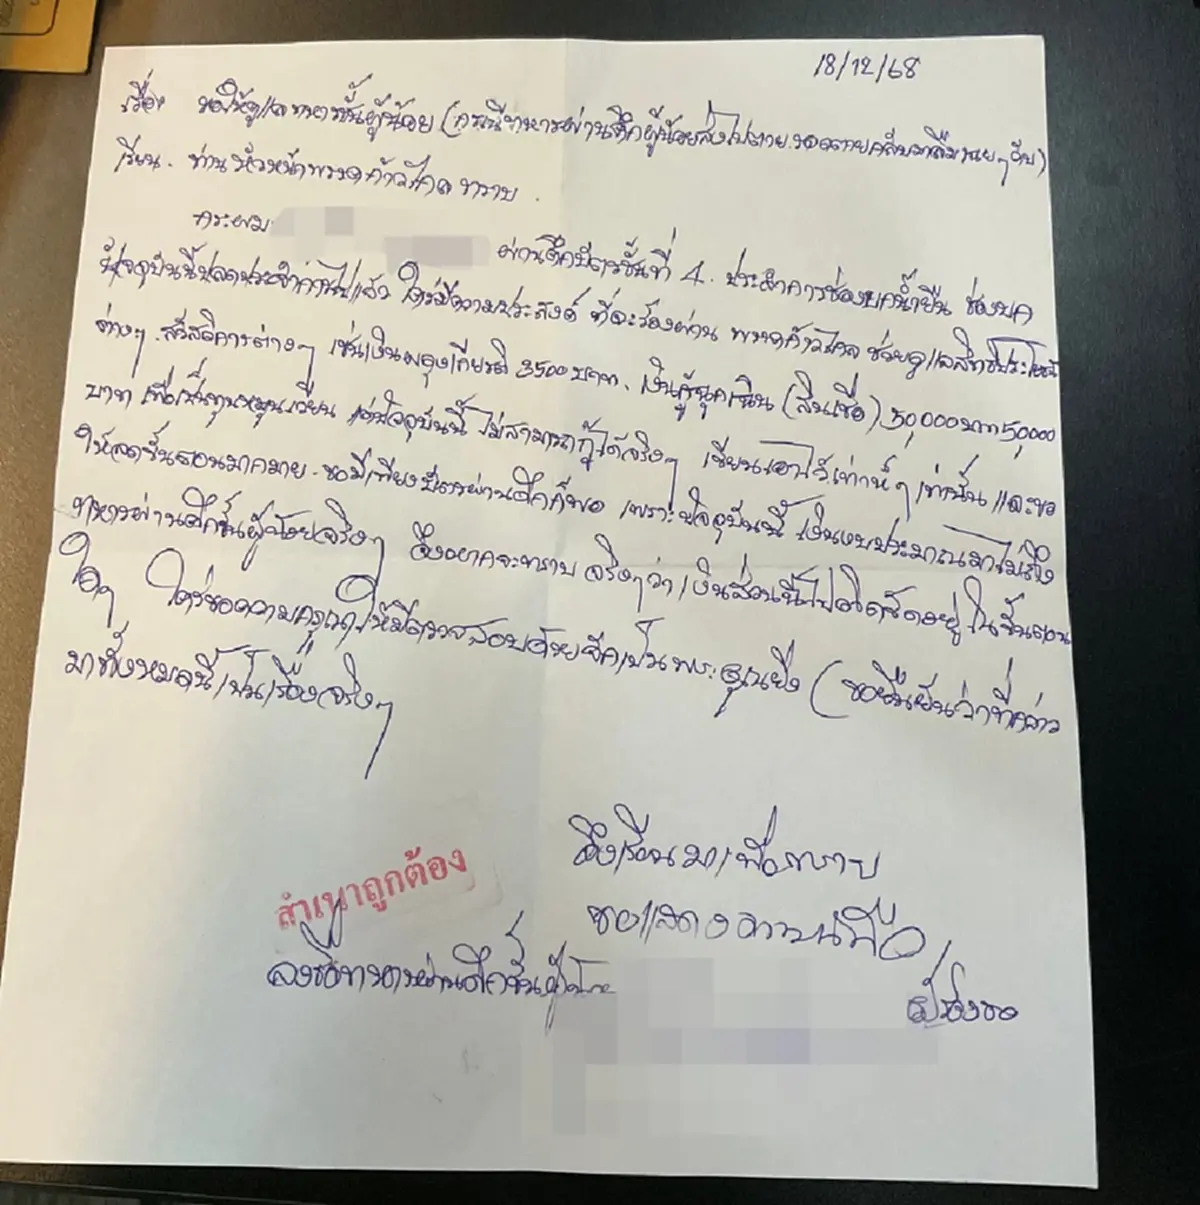 18/12/68
เรื่อง ขอให้ดูแลทหารชั้นผู้น้อย (กรณีทหารผ่านศึกผู้น้อยส่งไปตาย
เรียน. ท่านหัวหน้าพรรคก้าวไกล ทราบ.
กระผม
ผ่านศึกบัตรชั้นที่ 4. ประจำการช่องบกน้ำยืน ช่องบก
ปัจจุบันนี้ปลดประจำการไปแล้ว ใคร่มีความประสงค์ ที่จะร้องผ่าน พรรคก้าวไกล ช่วยดูแลสิทธิประโยชน์
ต่างๆ. สวัสดิการต่างๆ เช่นเงินผดุงเกียรติ 3500 บาท. เงินกู้ฉุกเฉิน (สินเชื่อ) 50,000บาท 50,000
บาท เพื่อเป็นทุนหมุนเวียน แต่ปัจจุบันนี้ ไม่สามารถกู้ได้จริงๆ เขียนเอาไว้เท่ห์ๆ เท่านั้น และขอ
ให้ลดขั้นตอนมากมาย. ขอมีเพียงบัตรผ่านศึกก็พอ เพราะปัจจุบันนี้ เงินงบประมาณมาไม่ถึง
ทหารผ่านศึกชั้นผู้น้อยจริงๆ จึงอยากจะทราบ จริงๆว่า เงินส่วนนี้ไปติดขัดอยู่ ในขั้นตอน
ใดๆ ใคร่ขอความกรุณา ให้มีตรวจสอบด้วยจักเป็นพระคุณยิ่ง (ขอยืนยันว่าที่กล่าว
มาทั้งหมดนี้เป็นเรื่องจริงๆ
จึงเรียนมาเพื่อทราบ
ขอแสดงความนับถือ
สำเนาถูกต้อง
ลงชื่อทหารผ่านศึกชั้นผู้น้อย ผู้ร้องขอ